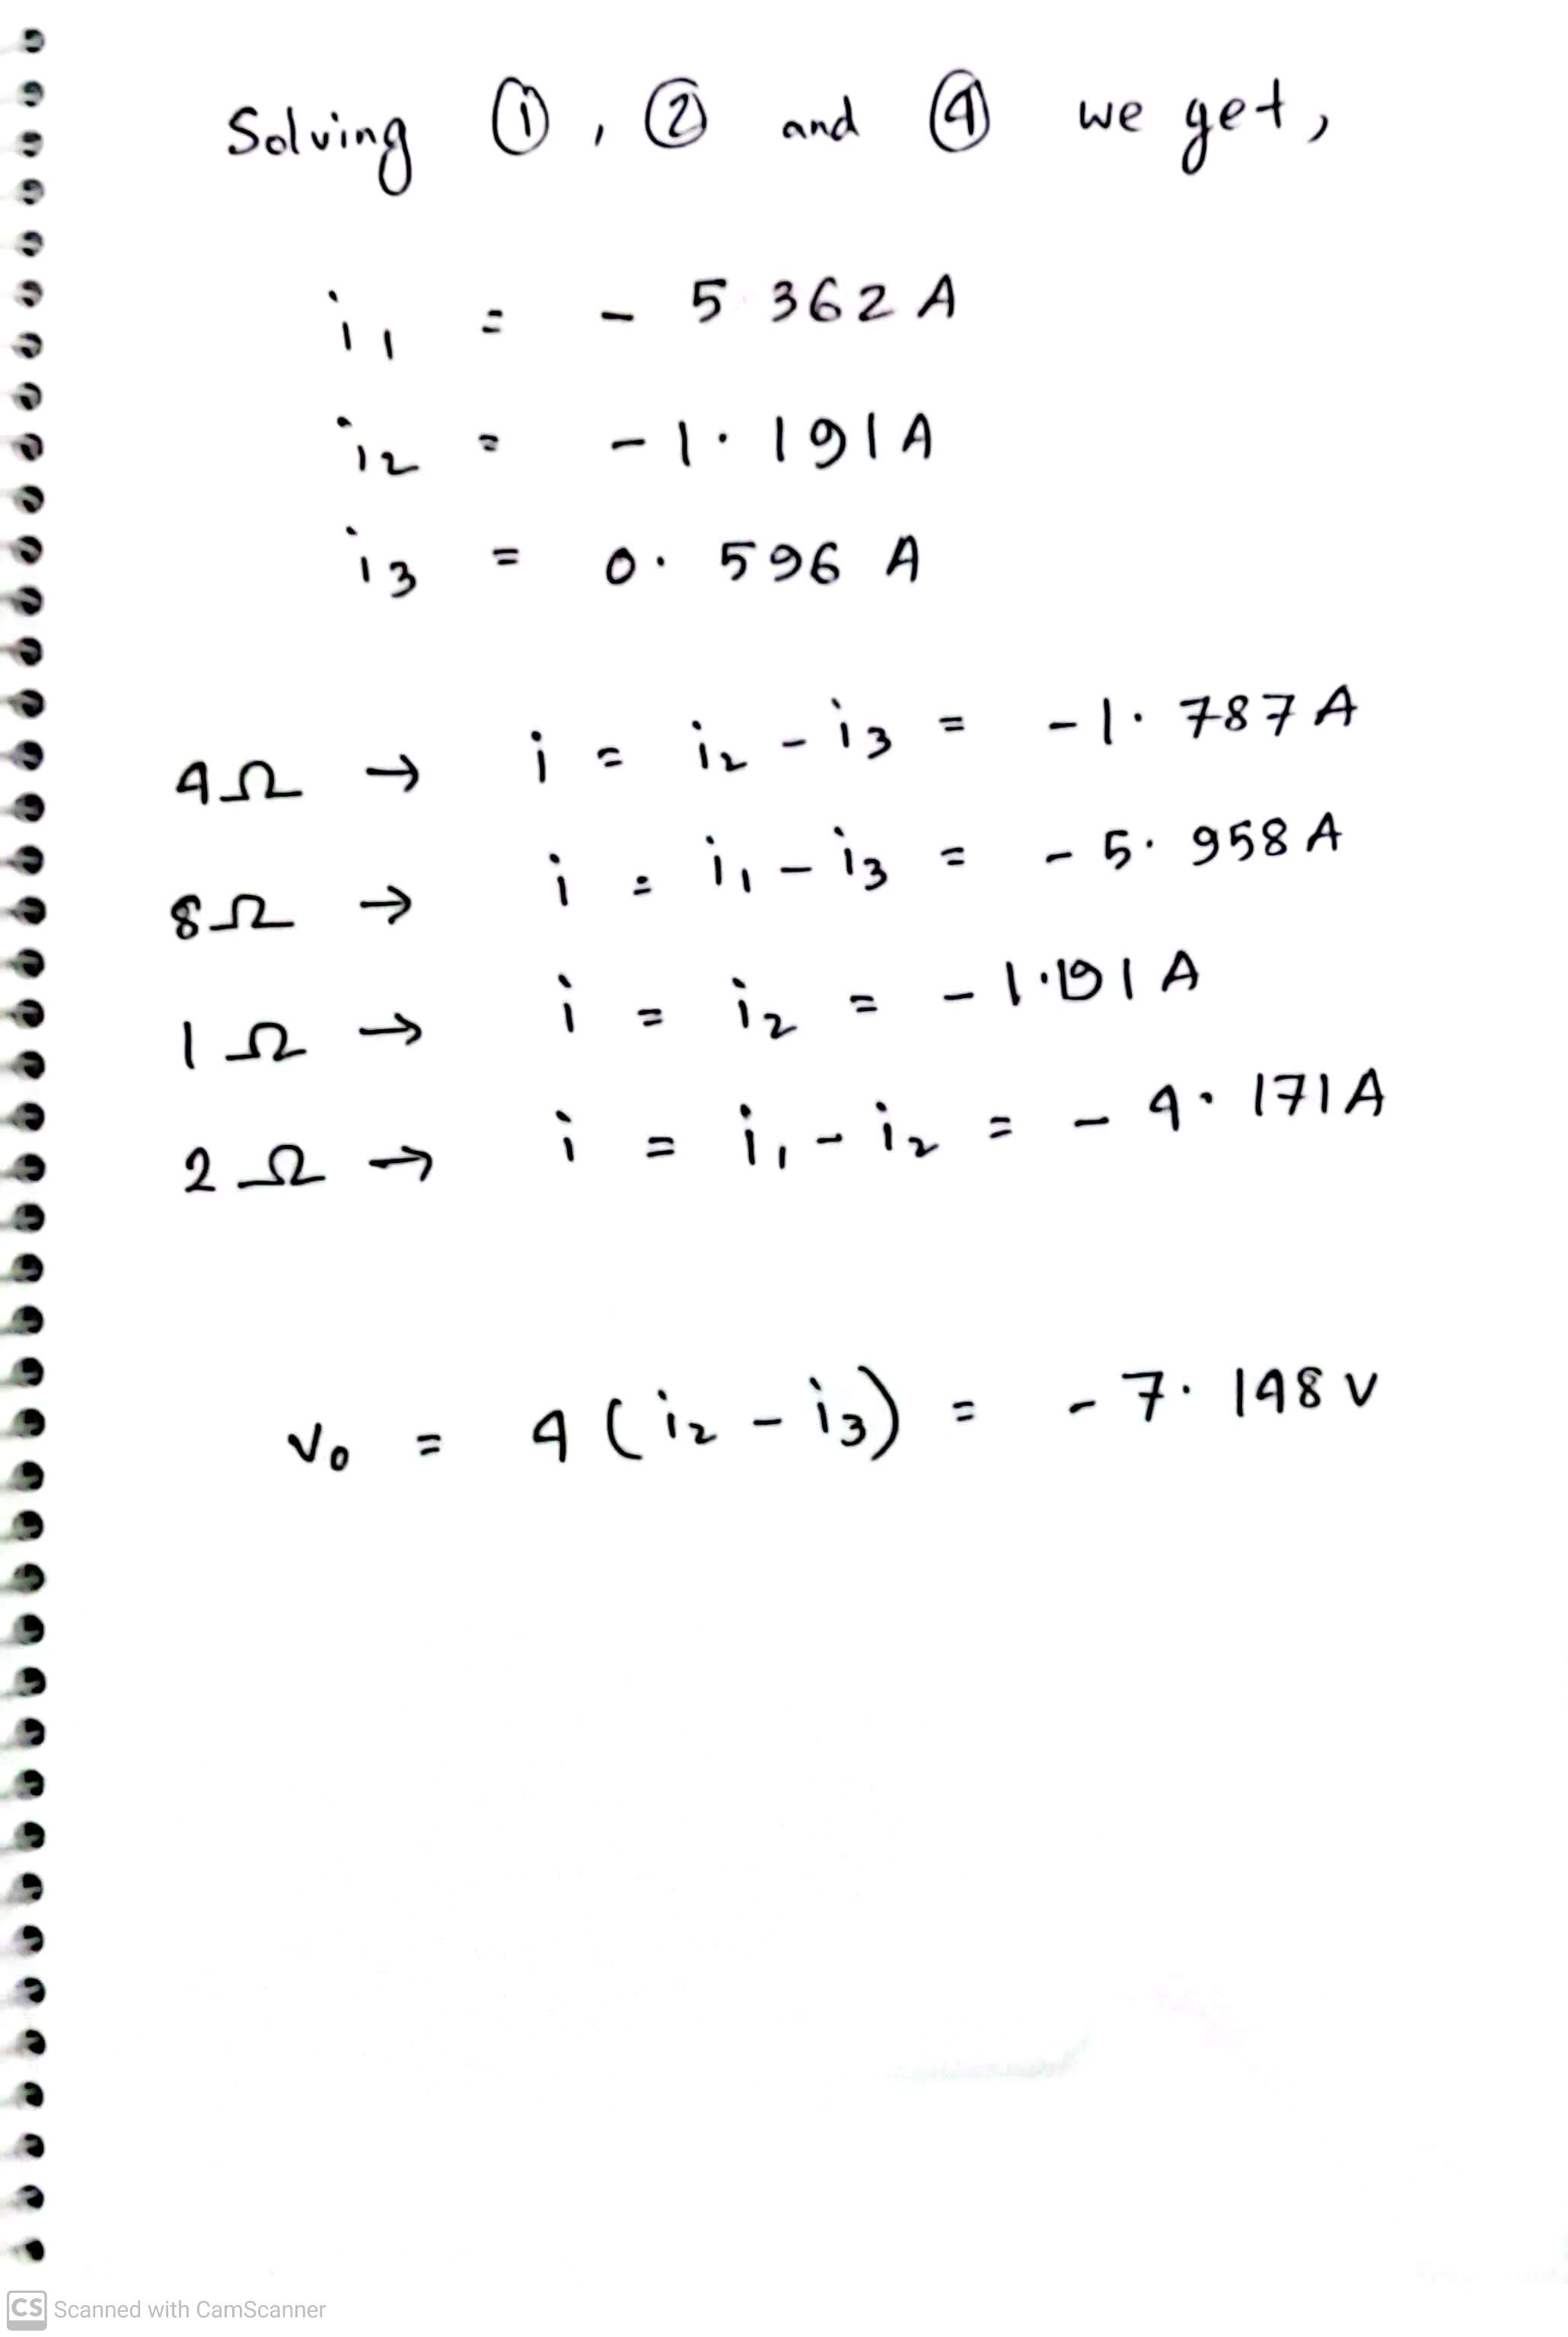 Solving ①, ② and ④ we get,
i₁ = - 5.362 A
i₂ = -1.191A
i₃ = 0.596 A
4Ω → i = i₂ - i₃ = -1.787 A
8Ω → i = i₁ - i₃ = - 5.958 A
1Ω → i = i₂ = -1.191 A
2Ω → i = i₁ - i₂ = - 4.171A
v₀ = 4 (i₂ - i₃) = - 7.148 V
CS Scanned with CamScanner